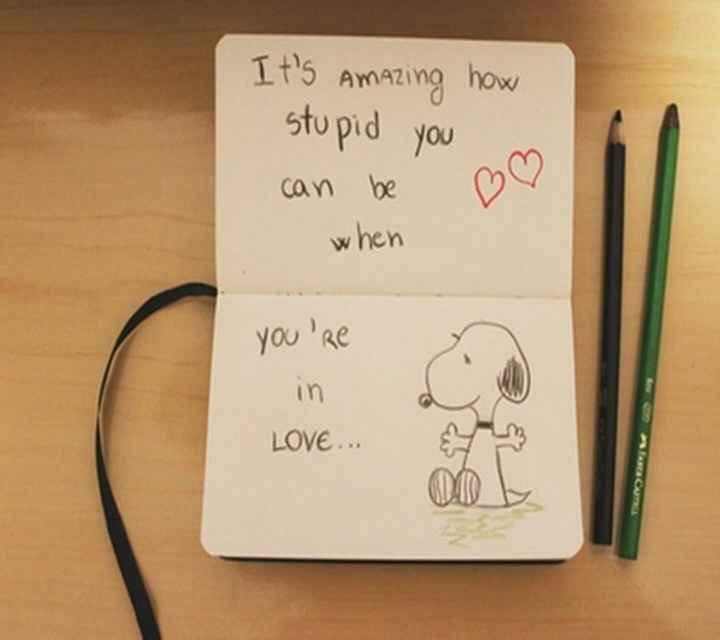 It's AMAZING how
stupid you
can be
when
you'RE
in
LOVE...
FABER-CASTELL